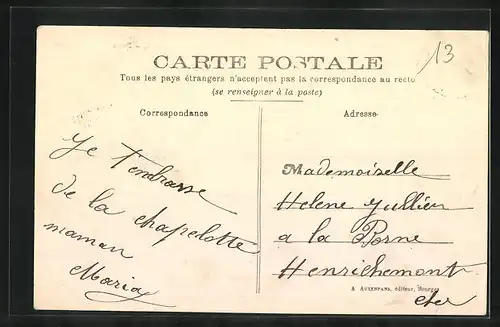 13
CARTE POSTALE
Tous les pays étrangers n'acceptent pas la correspondance au recto
(se renseigner à la poste)
Correspondance
Adresse
Je t'embrasse
de la chapelotte
maman
Maria
Mademoiselle
Helene Jullien
a la Borne
Henrichemont
cher
A. AUXENFANS, éditeur, Bourges